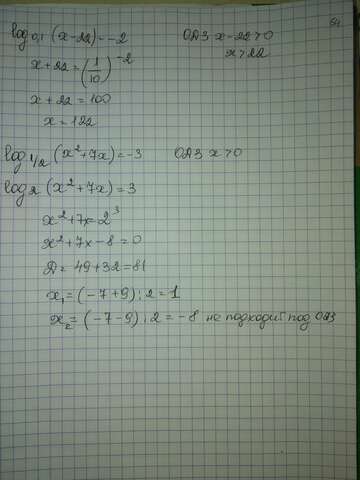 64
log 0,1 (x-22)=-2 ОДЗ x-22>0
x+22=(1/10)^-2 x>22
x+22=100
x=122
log 1/2 (x²+7x)=-3 ОДЗ x>0
log 2 (x²+7x)=3
x²+7x=2³
x²+7x-8=0
Д=49+32=81
x₁=(-7+9):2=1
x₂=(-7-9):2=-8 не подходит под ОДЗ